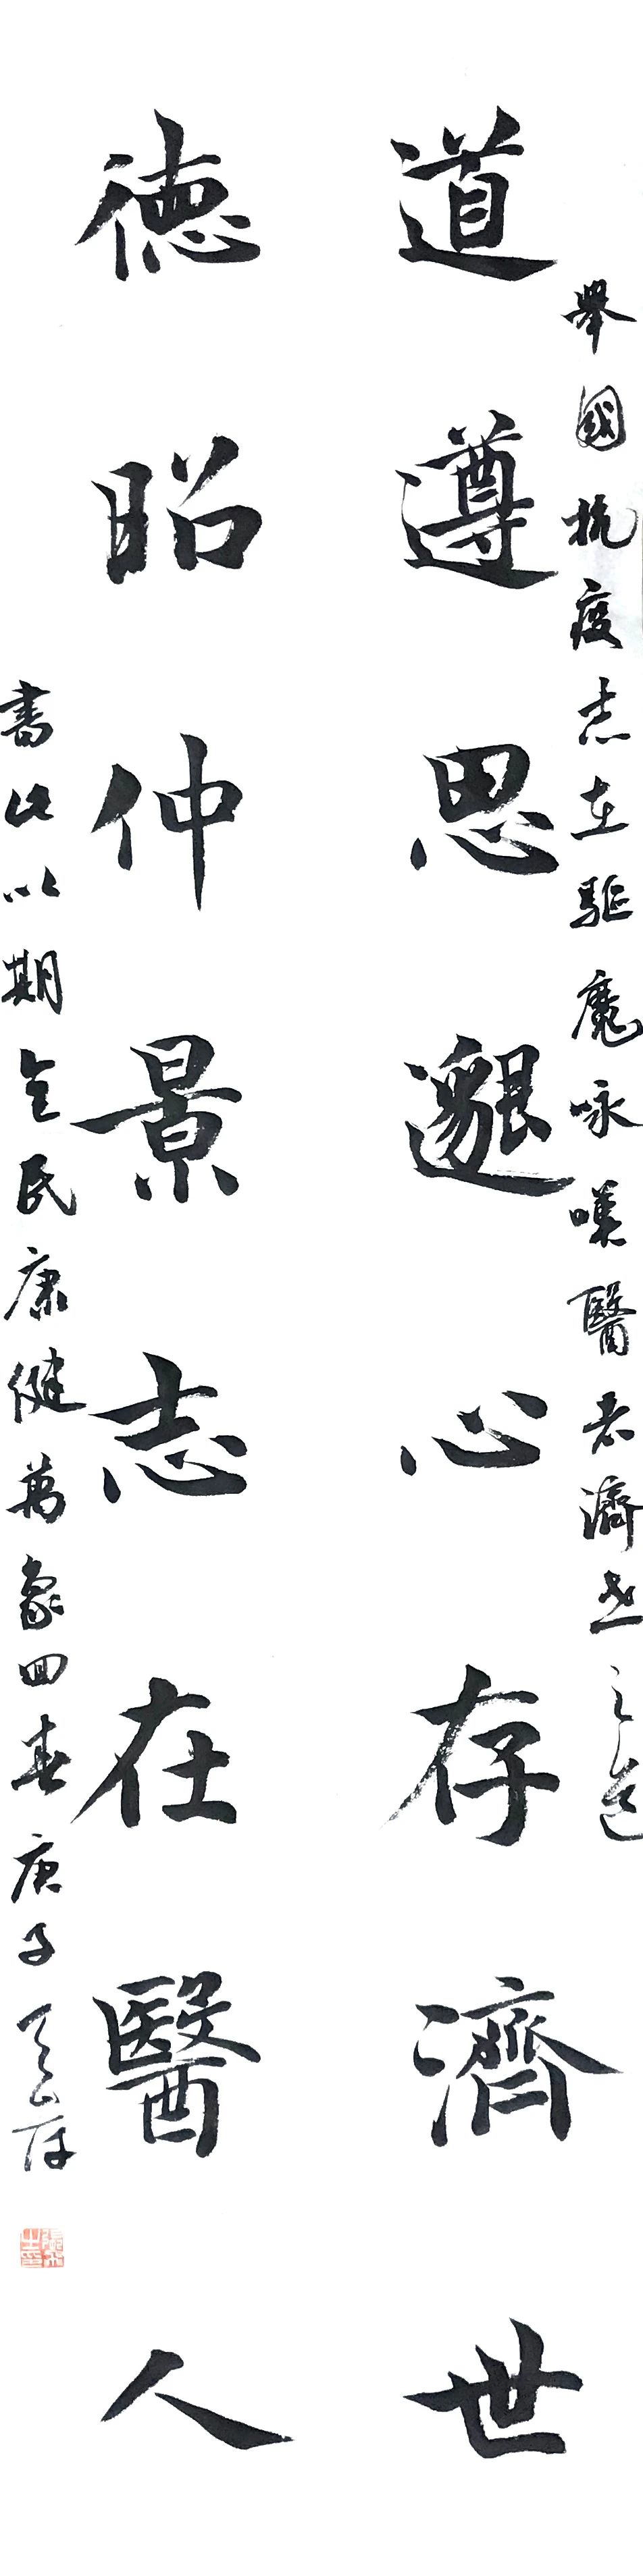 舉國抗疫志在驅魔咏嘆醫者濟世之道
道遵思邈心存濟世
德昭仲景志在醫人
書此以期全民康健萬象回春庚子